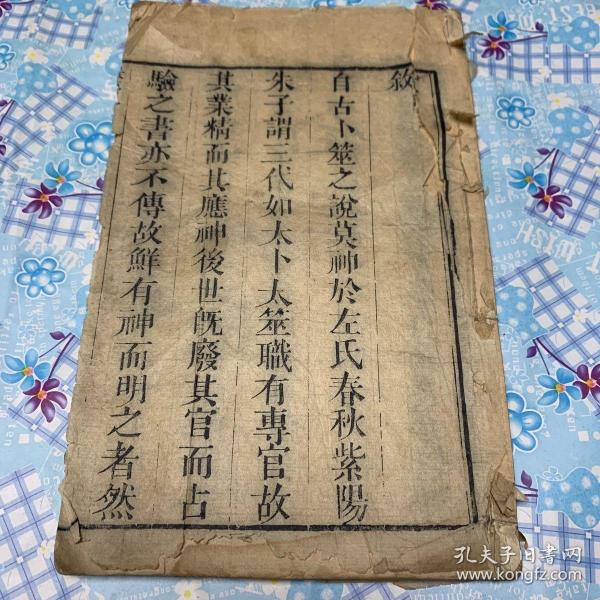 敘
自古卜筮之說莫神於左氏春秋紫陽
朱子謂三代如太卜太筮職有專官故
其業精而其應神後世旣廢其官而占
驗之書亦不傳故鮮有神而明之者然
孔夫子旧书网
www.kongfz.com